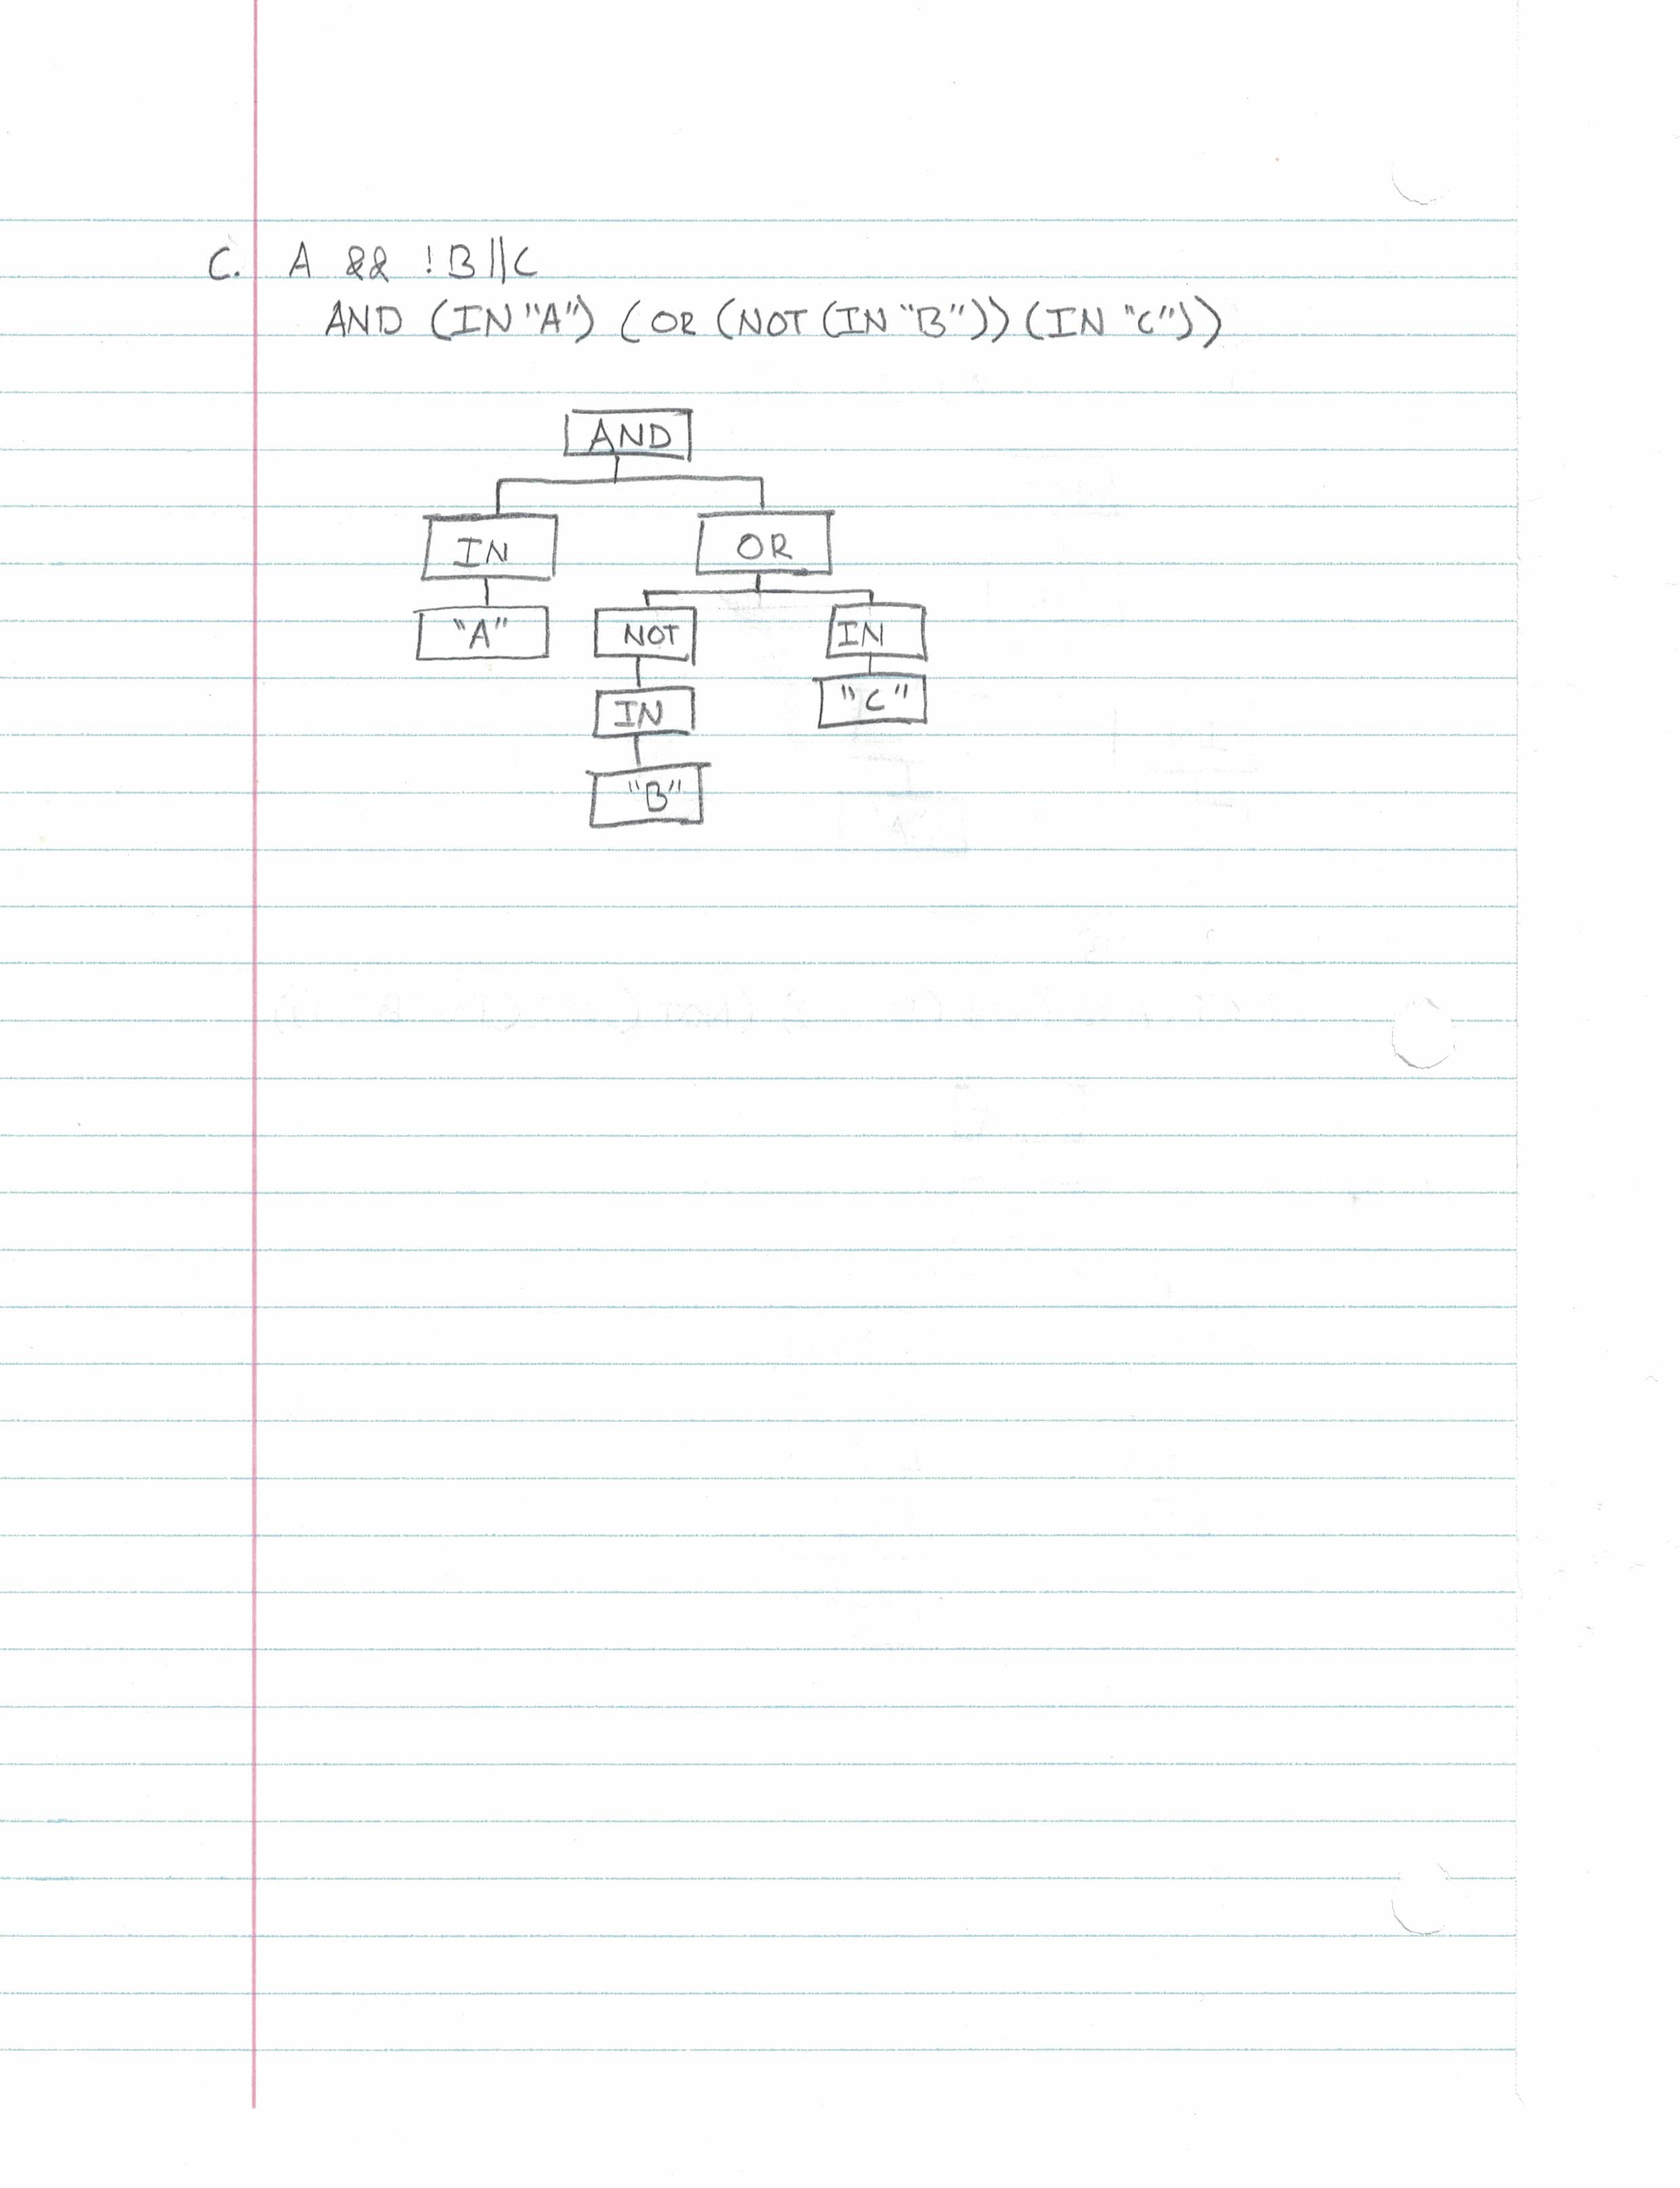 C. A && !B||C
AND (IN "A") (OR (NOT (IN "B")) (IN "C"))
AND
IN OR
"A" NOT IN
IN "C"
"B"